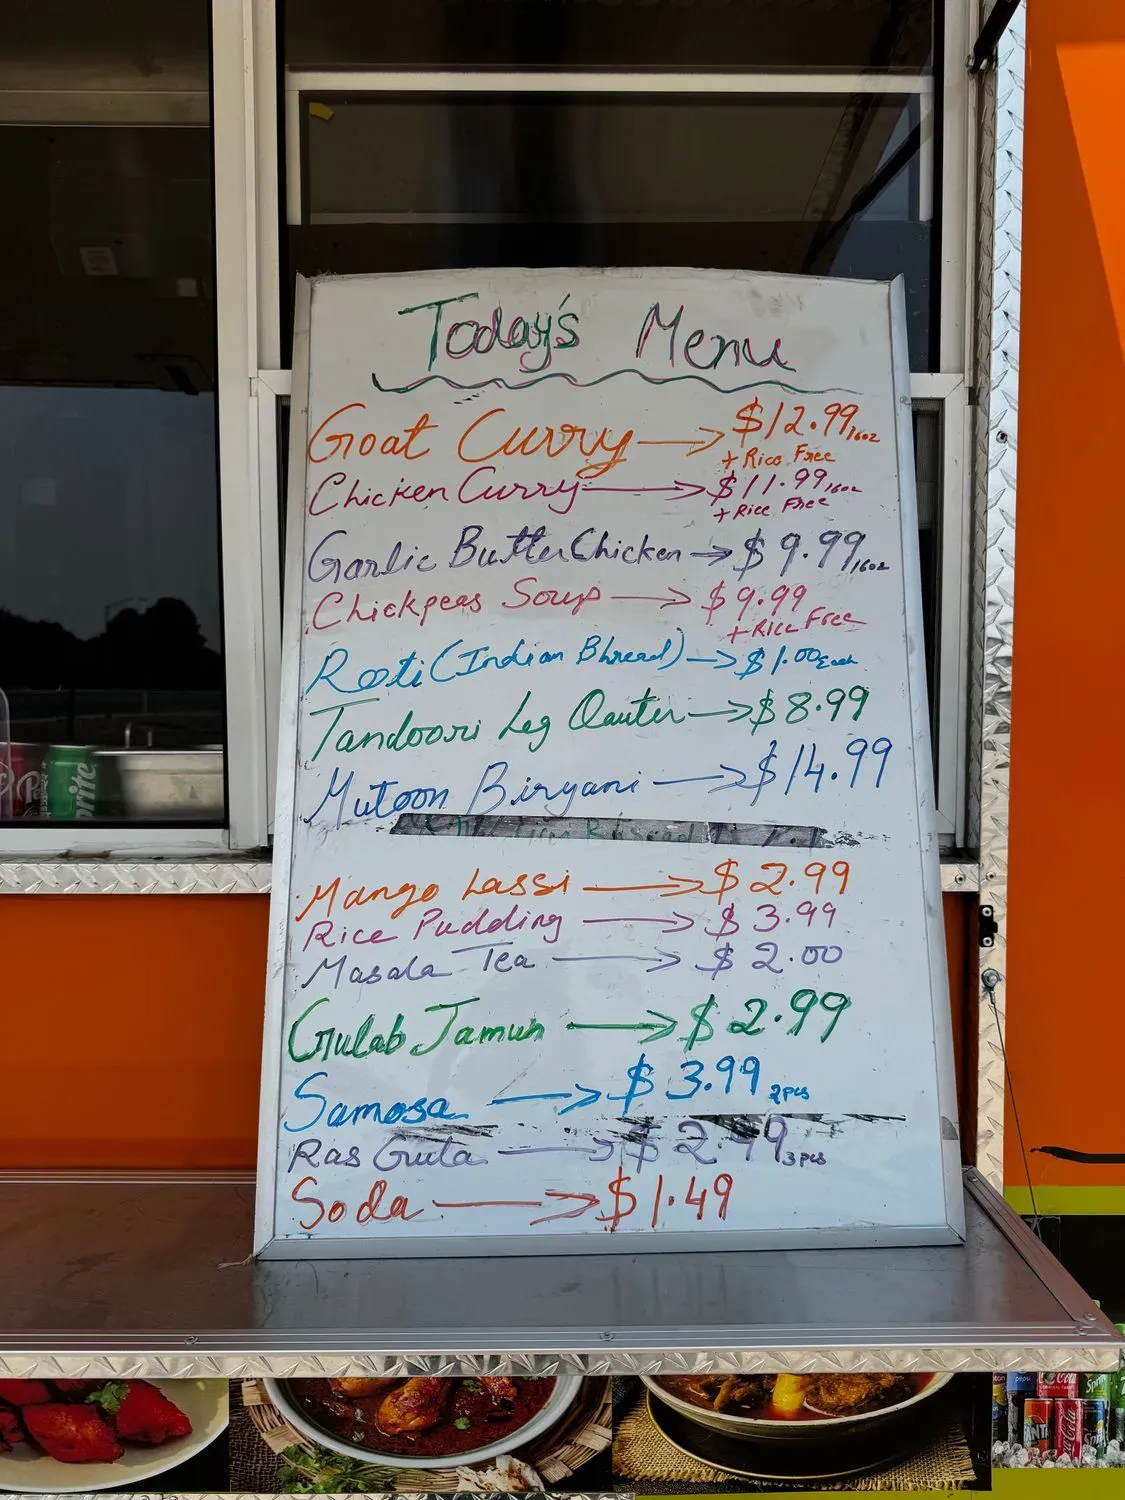 Today's Menu
Goat Curry → $12.99 16oz
+ Rice Free
Chicken Curry → $11.99 16oz
+ Rice Free
Garlic Butter Chicken → $9.99 16oz
Chickpeas Soup → $9.99
+ Rice Free
Rooti (Indian Bhread) → $1.00 Each
Tandoori Leg Qauter → $8.99
Mutoon Biryani → $14.99
Mango Lassi → $2.99
Rice Pudding → $3.99
Masala Tea → $2.00
Gulab Jamun → $2.99
Samosa → $3.99 2pcs
Ras Gulla → $2.99 3pcs
Soda → $1.49
rite
pepsi
Coca-Cola